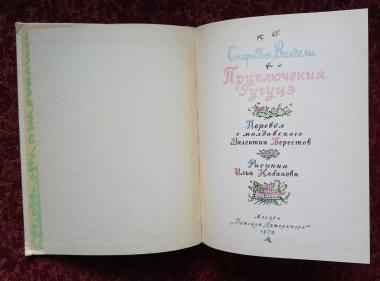 Спиридон Вангели
Приключения
Гугуцэ
Перевёл
с молдавского
Валентин Берестов
Рисунки
Ильи Кабакова
Москва
„Детская Литература“
1972